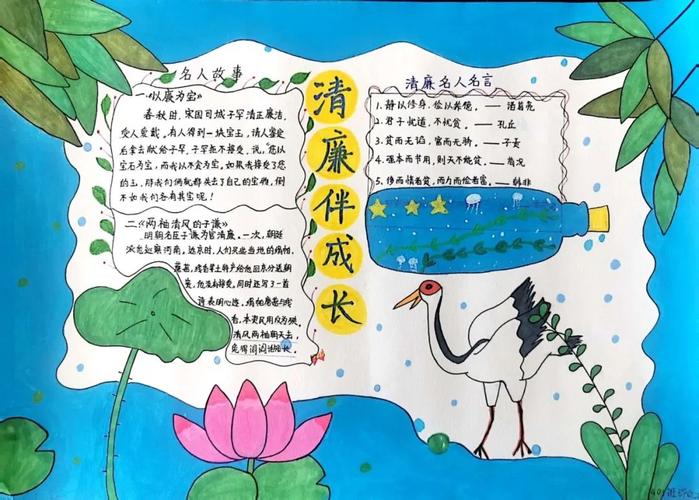 名人故事
一《以廉为宝》
春秋时，宋国司城子罕清正廉洁，
受人爱戴，有人得到一块宝玉，请人鉴定
后拿去献给子罕，子罕拒不接受，说："您以
宝石为宝，而我以不贪为宝。如果我接受了您
的玉，那我们俩就都失去了自己的宝物，倒
不如我们各有其宝呢！
二《两袖清风的于谦》
明朝名臣于谦为官清廉，一次，朝廷
派他巡察河南，返京时，人们买些当地的绢帕
蘑菇，线香等土特产给他回京分送朝
贵，他没有接受，同时还写了一首
诗表明心迹，绢帕蘑菇与线
香，本资民用反为殃，
清风两袖朝天去，
免得闾阎话短长。
清廉伴成长
清廉名人名言
1、静以修身，俭以养德，——诸葛亮
2、君子忧道，不忧贫，——孔丘
3、贫而无谄，富而无骄，——子贡
4、强本而节用，则天不能贫，——荀况
5、侈而惰者贫，而力而俭者富，——韩非